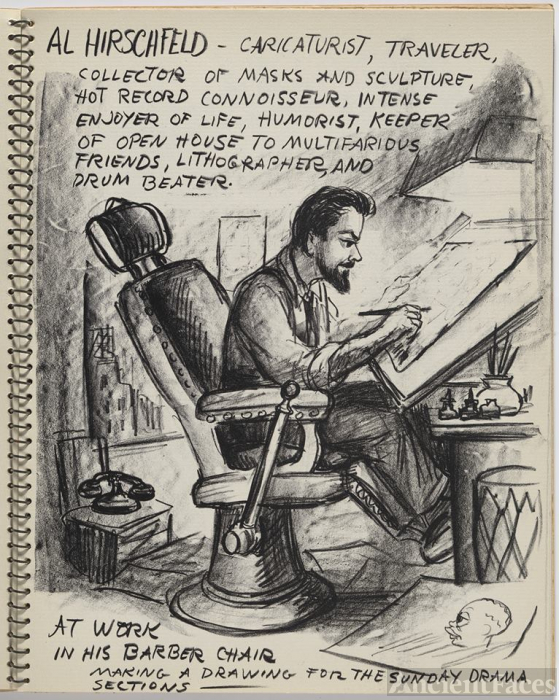 AL HIRSCHFELD - CARICATURIST, TRAVELER,
COLLECTOR OF MASKS AND SCULPTURE,
HOT RECORD CONNOISSEUR, INTENSE
ENJOYER OF LIFE, HUMORIST, KEEPER
OF OPEN HOUSE TO MULTIFARIOUS
FRIENDS, LITHOGRAPHER, AND
DRUM BEATER.
AT WORK
IN HIS BARBER CHAIR
MAKING A DRAWING FOR THE SUNDAY DRAMA
SECTIONS
AncientFaces